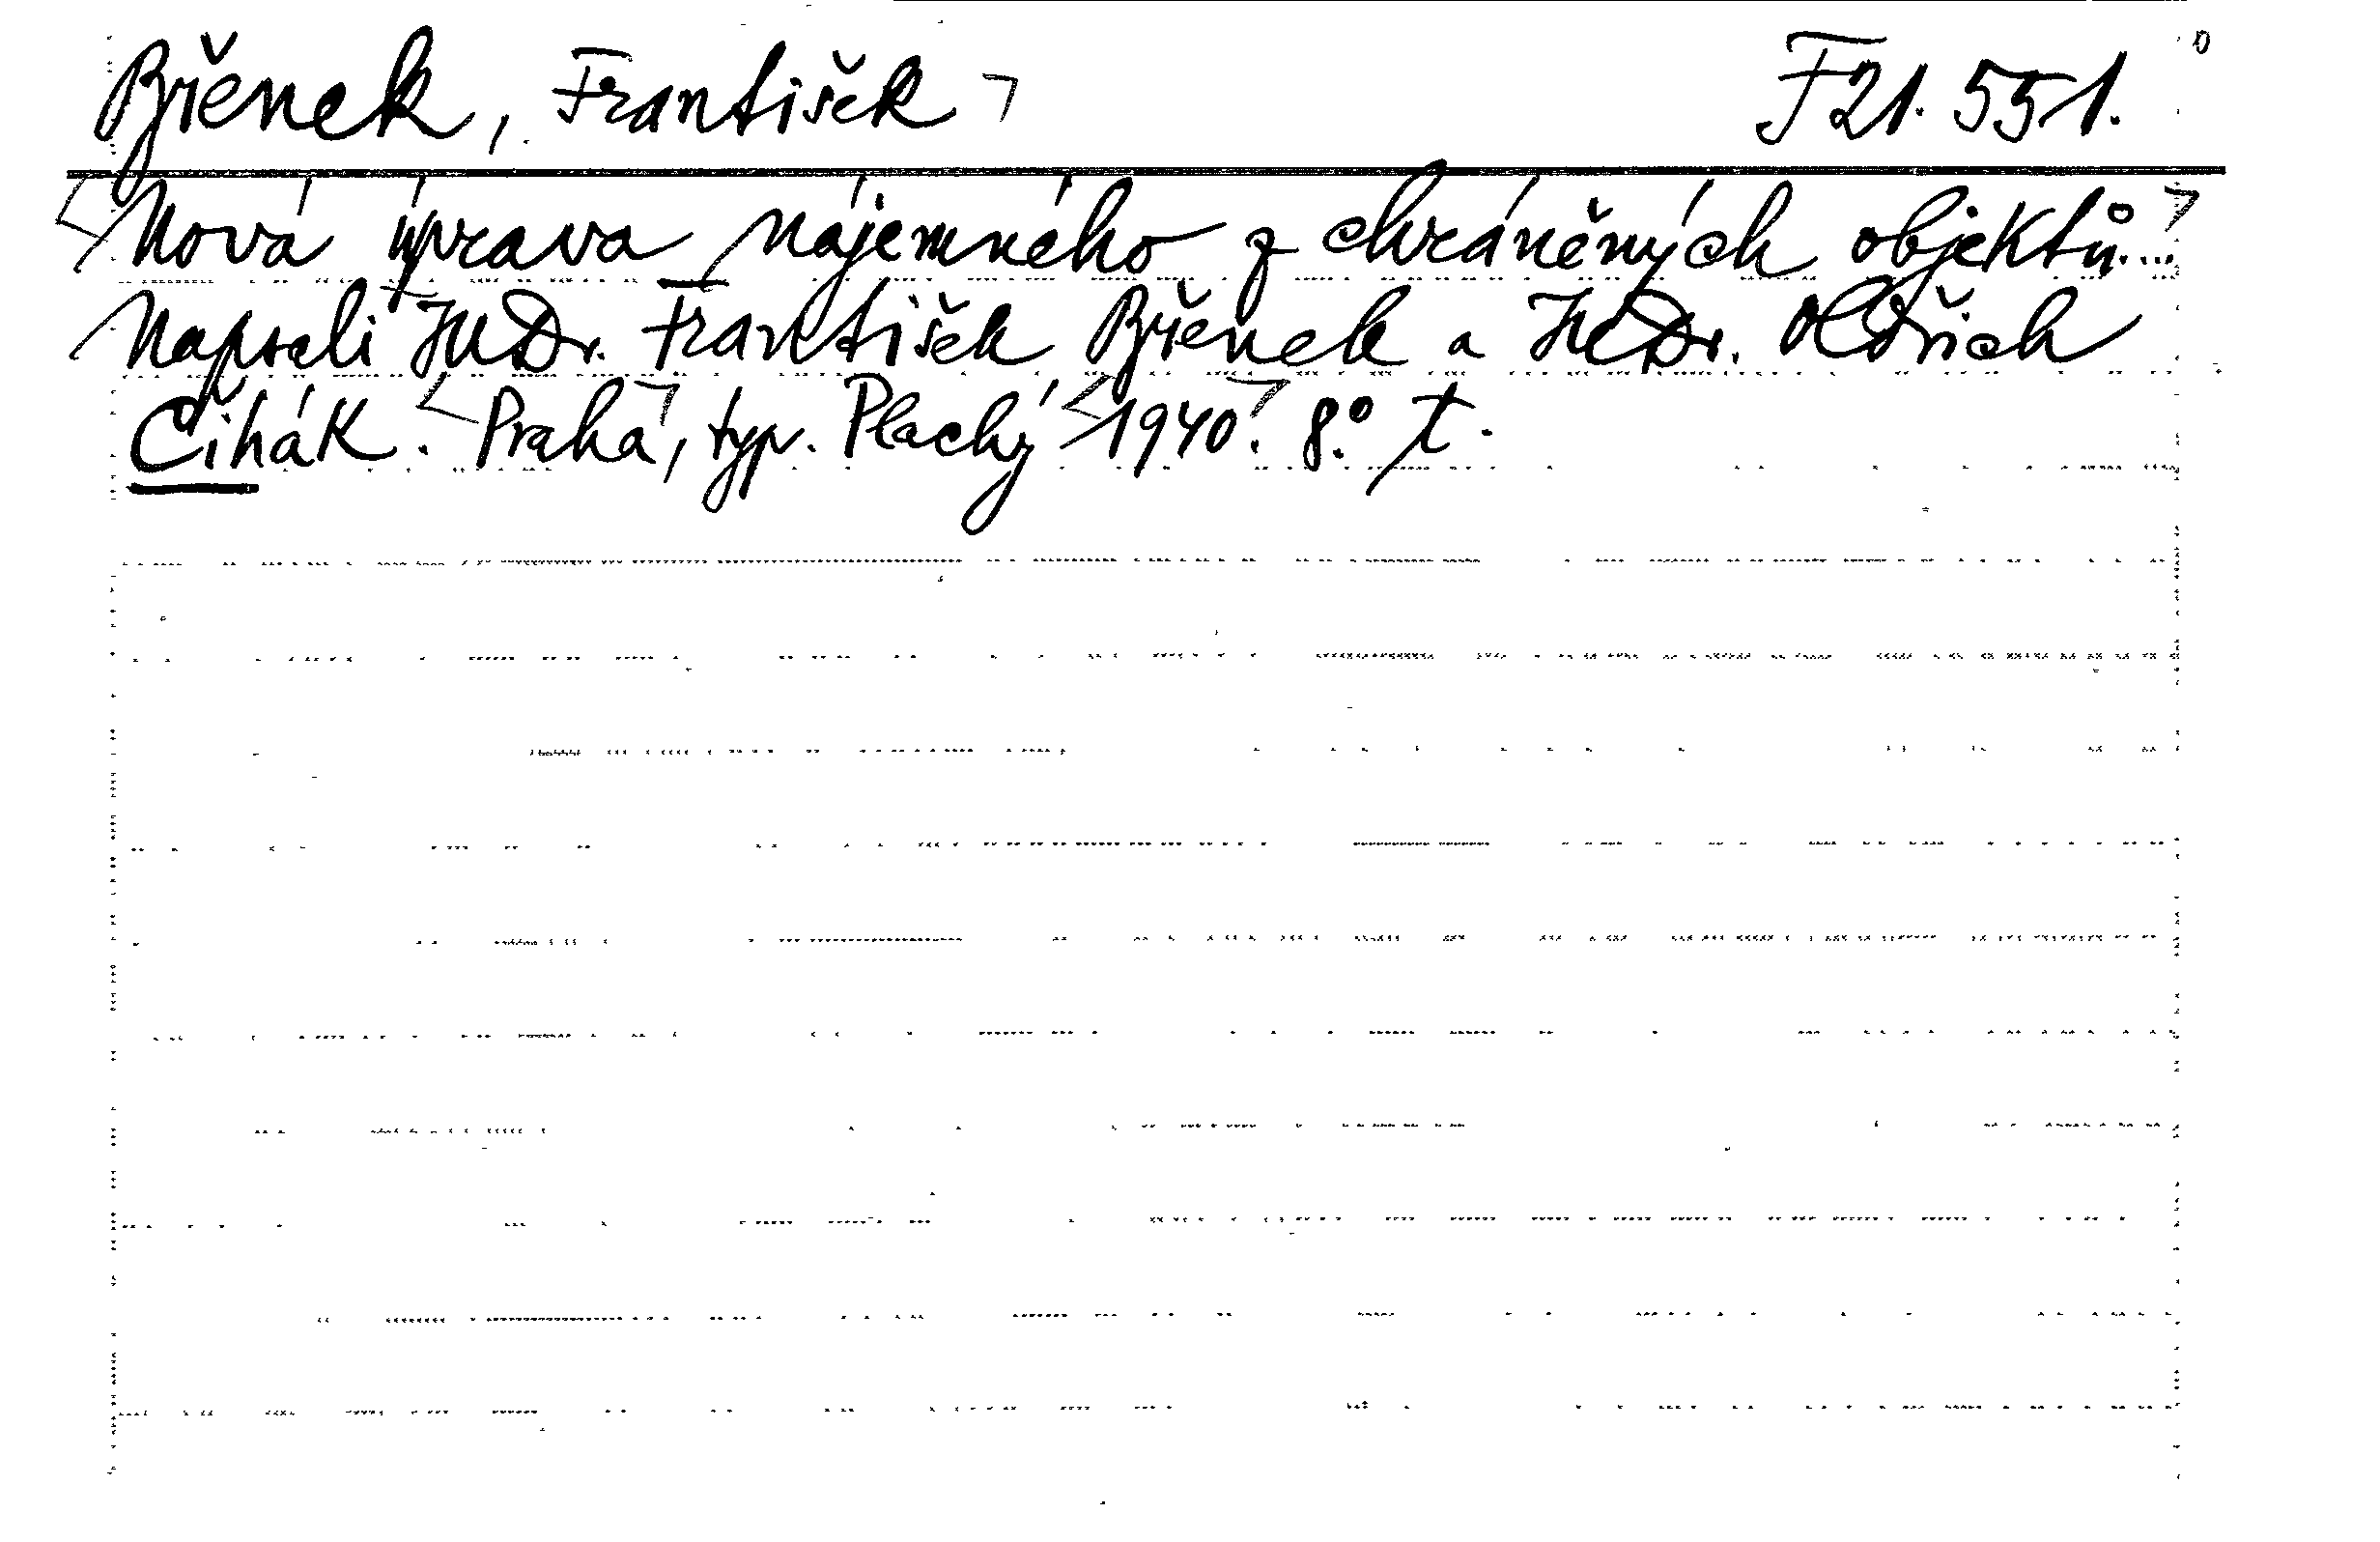 Břenek, František F 21.551.
Nová úprava nájemného z chráněných objektů...
Napsali JUDr. František Břenek a JUDr. Oldřich
Čihák. Praha, typ. Plachý 1940. 8.° t.